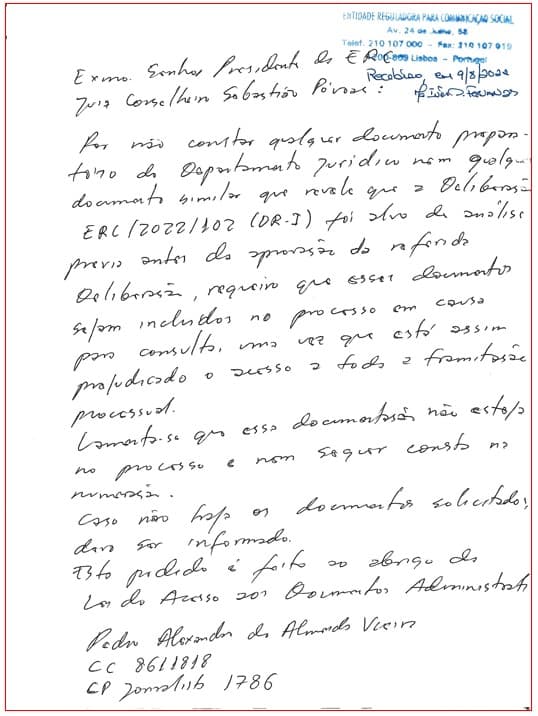 ENTIDADE REGULADORA PARA COMUNICAÇÃO SOCIAL
Av. 24 de Julho, 58
Telef. 210 107 000 - Fax: 210 107 019
Lisboa - Portugal
Exmo. Senhor Presidente da ERC
Recebido em 9/8/2022
Juiz Conselheiro Sebastião Póvoas:
Por não constar qualquer documento prepara-
tório do Departamento Jurídico nem qualqu
documento similar que revele que a Deliberação
ERC/2022/102 (DR-I) foi alvo de análise
prévia antes da aprovação da referida
Deliberação, requeiro que esses documentos
sejam incluídos no processo em causa
para consulta, uma vez que está assim
prejudicado o acesso a toda a tramitação
processual.
Lamenta-se que essa documentação não esteja
no processo e nem sequer conste na
numeração.
Caso não haja os documentos solicitados,
devo ser informado.
Este pedido é feito ao abrigo da
Lei do Acesso aos Documentos Administrati
Pedro Alexandre de Almeida Vieira
CC 8611818
CP Jornalista 1786